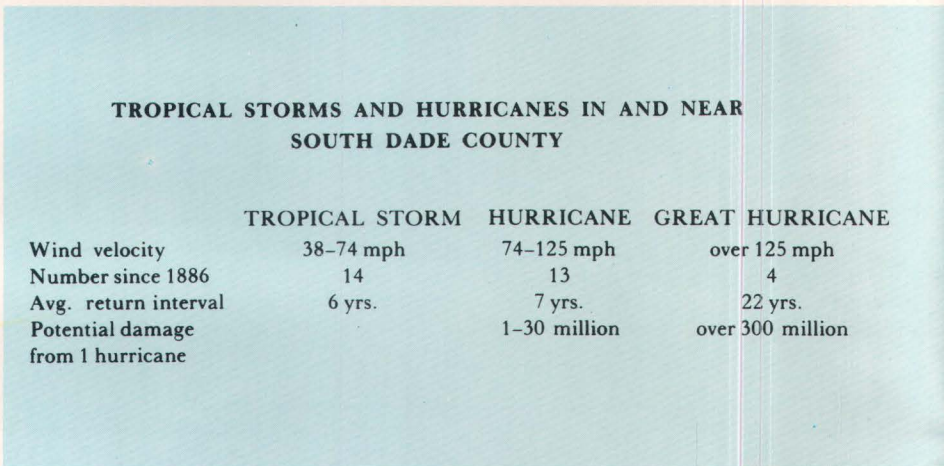 TROPICAL STORMS AND HURRICANES IN AND NEAR
SOUTH DADE COUNTY
TROPICAL STORM HURRICANE GREAT HURRICANE
Wind velocity 38–74 mph 74–125 mph over 125 mph
Number since 1886 14 13 4
Avg. return interval 6 yrs. 7 yrs. 22 yrs.
Potential damage 1–30 million over 300 million
from 1 hurricane